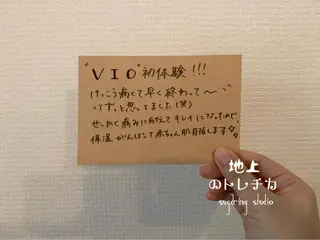 "VIO"初体験!!!
けっこう痛くて早く終わって〜
ってずっと思ってました(笑)
せっかく痛みに耐えてキレイになったので、
保湿がんばって赤ちゃん肌目指します
地上
のトレチカ
sugaring studio